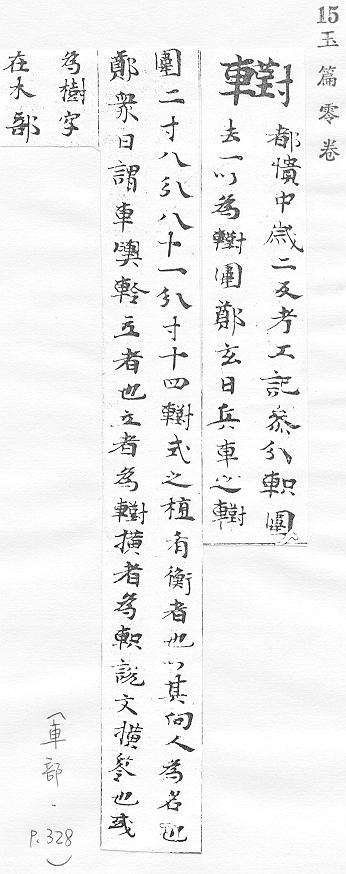 15玉篇零卷
轛 都憒中嵗二反考工記叅分軹圍
去一以為轛圍鄭玄曰兵車之轛
圍二寸八分八十一分寸十四轛式之植者衡者也以其向人為名也
鄭衆曰謂車輿軨立者也立者為轛橫者為軹說文橫軨也或
為樹字
在木部
(車部.
P.328)